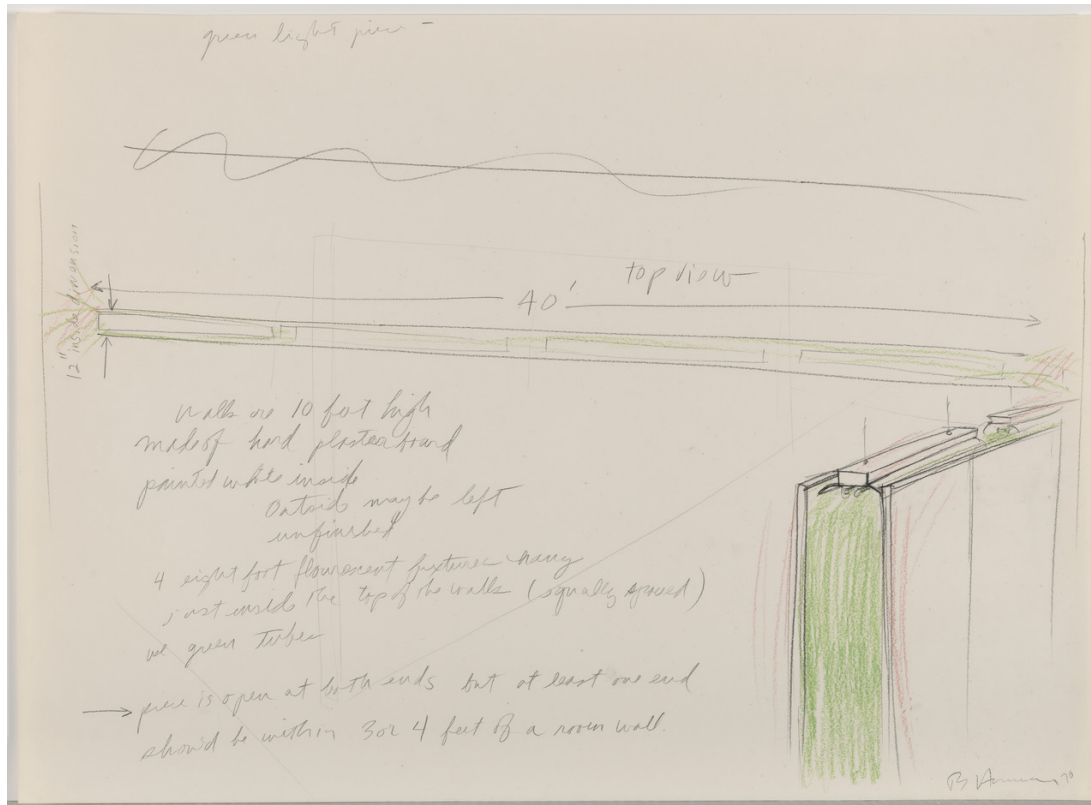 green light piece
top view
40'
12" inside dimension
walls are 10 foot high
made of hard plasterboard
painted white inside
Outside may be left
unfinished
4 eight foot flourescent fixtures hang
just inside the top of the walls (equally spaced)
use green tubes
piece is open at both ends but at least one end
should be within 3 or 4 feet of a room wall.
B Nauman 70